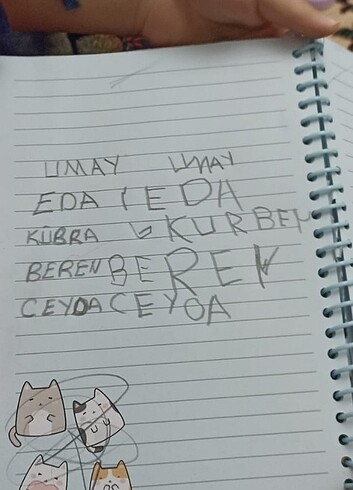 UMAY UMAY
EDA EDA
KÜBRA KURBEY
BEREN BEREN
CEYDA CEYDA